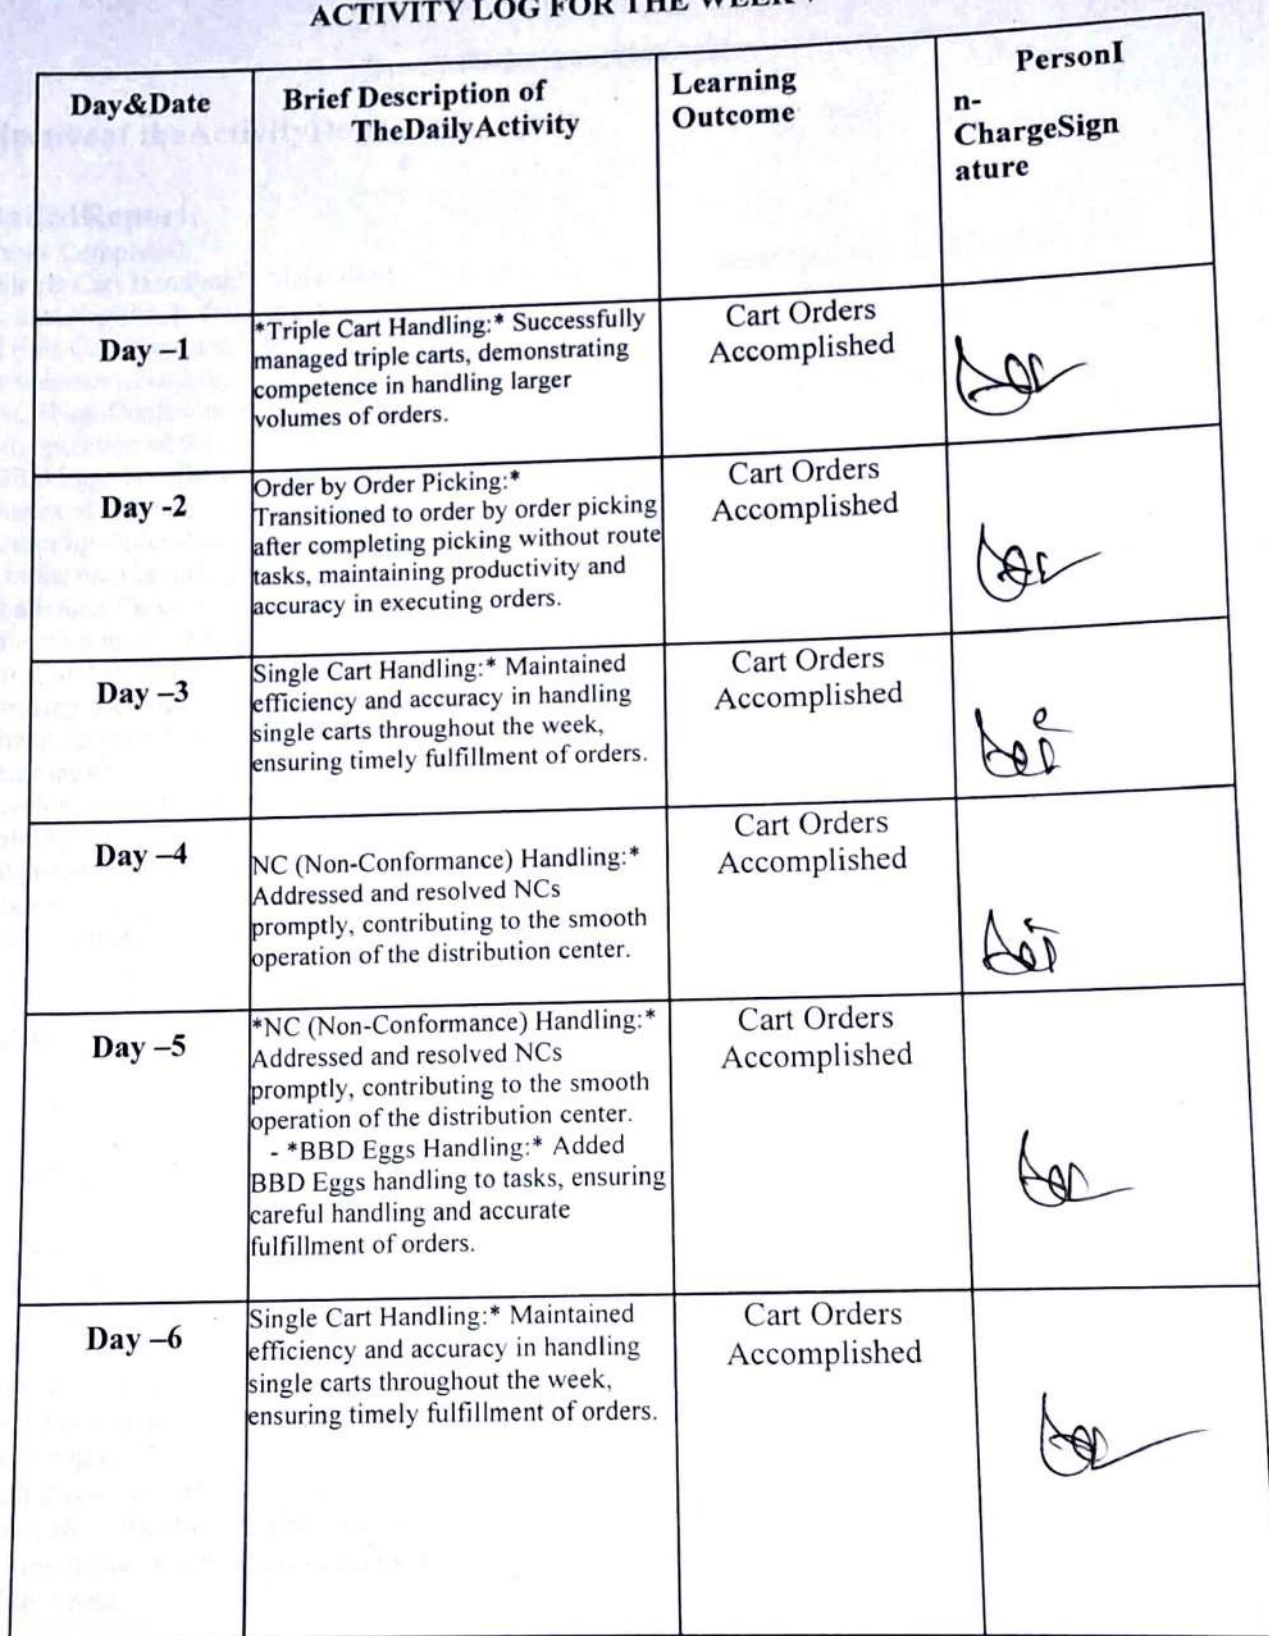 ACTIVITY LOG FOR THE WEEK
Day&Date
Brief Description of
TheDailyActivity
Learning
Outcome
PersonI
n-
ChargeSign
ature
Day –1
*Triple Cart Handling:* Successfully
managed triple carts, demonstrating
competence in handling larger
volumes of orders.
Cart Orders
Accomplished
Day -2
Order by Order Picking:*
Transitioned to order by order picking
after completing picking without route
tasks, maintaining productivity and
accuracy in executing orders.
Cart Orders
Accomplished
Day –3
Single Cart Handling:* Maintained
efficiency and accuracy in handling
single carts throughout the week,
ensuring timely fulfillment of orders.
Cart Orders
Accomplished
Day –4
NC (Non-Conformance) Handling:*
Addressed and resolved NCs
promptly, contributing to the smooth
operation of the distribution center.
Cart Orders
Accomplished
Day –5
*NC (Non-Conformance) Handling:*
Addressed and resolved NCs
promptly, contributing to the smooth
operation of the distribution center.
- *BBD Eggs Handling:* Added
BBD Eggs handling to tasks, ensuring
careful handling and accurate
fulfillment of orders.
Cart Orders
Accomplished
Day –6
Single Cart Handling:* Maintained
efficiency and accuracy in handling
single carts throughout the week,
ensuring timely fulfillment of orders.
Cart Orders
Accomplished